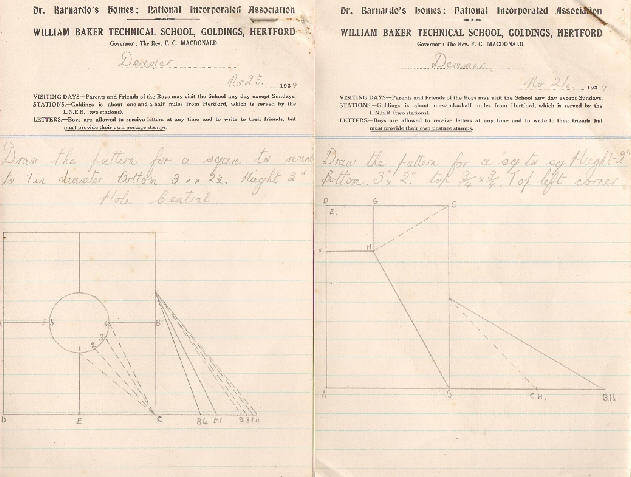 Dr. Barnardo's Homes: National Incorporated Association
WILLIAM BAKER TECHNICAL SCHOOL, GOLDINGS, HERTFORD
Governor: The Rev. F. C. MACDONALD
VISITING DAYS—Parents and Friends of the Boys may visit the School any day except Sundays.
STATIONS.—Goldings is about one and a half miles from Hertford, which is served by the
L.N.E.R. (two stations).
LETTERS—Boys are allowed to receive letters at any time and to write to their friends, but
must provide their own postage stamps.
Draw the pattern for a square to round
to 1 in diameter Bottom 3 x 2½. Height 2"
Hole Central
B
D E C
Dr. Barnardo's Homes: National Incorporated Association
WILLIAM BAKER TECHNICAL SCHOOL, GOLDINGS, HERTFORD
Governor: The Rev. F. C. MACDONALD
VISITING DAYS—Parents and Friends of the Boys may visit the School any day except Sundays.
STATIONS—Goldings is about one and a half miles from Hertford, which is served by the
L.N.E.R. (two stations).
LETTERS—Boys are allowed to receive letters at any time and to write to their friends but
must provide their own postage stamps.
Draw the pattern for a sq to sq Height 2"
Bottom 3" x 2" top ¾ x ¾ Top left corner
D G C
E.
H
A B C.H. B.H.